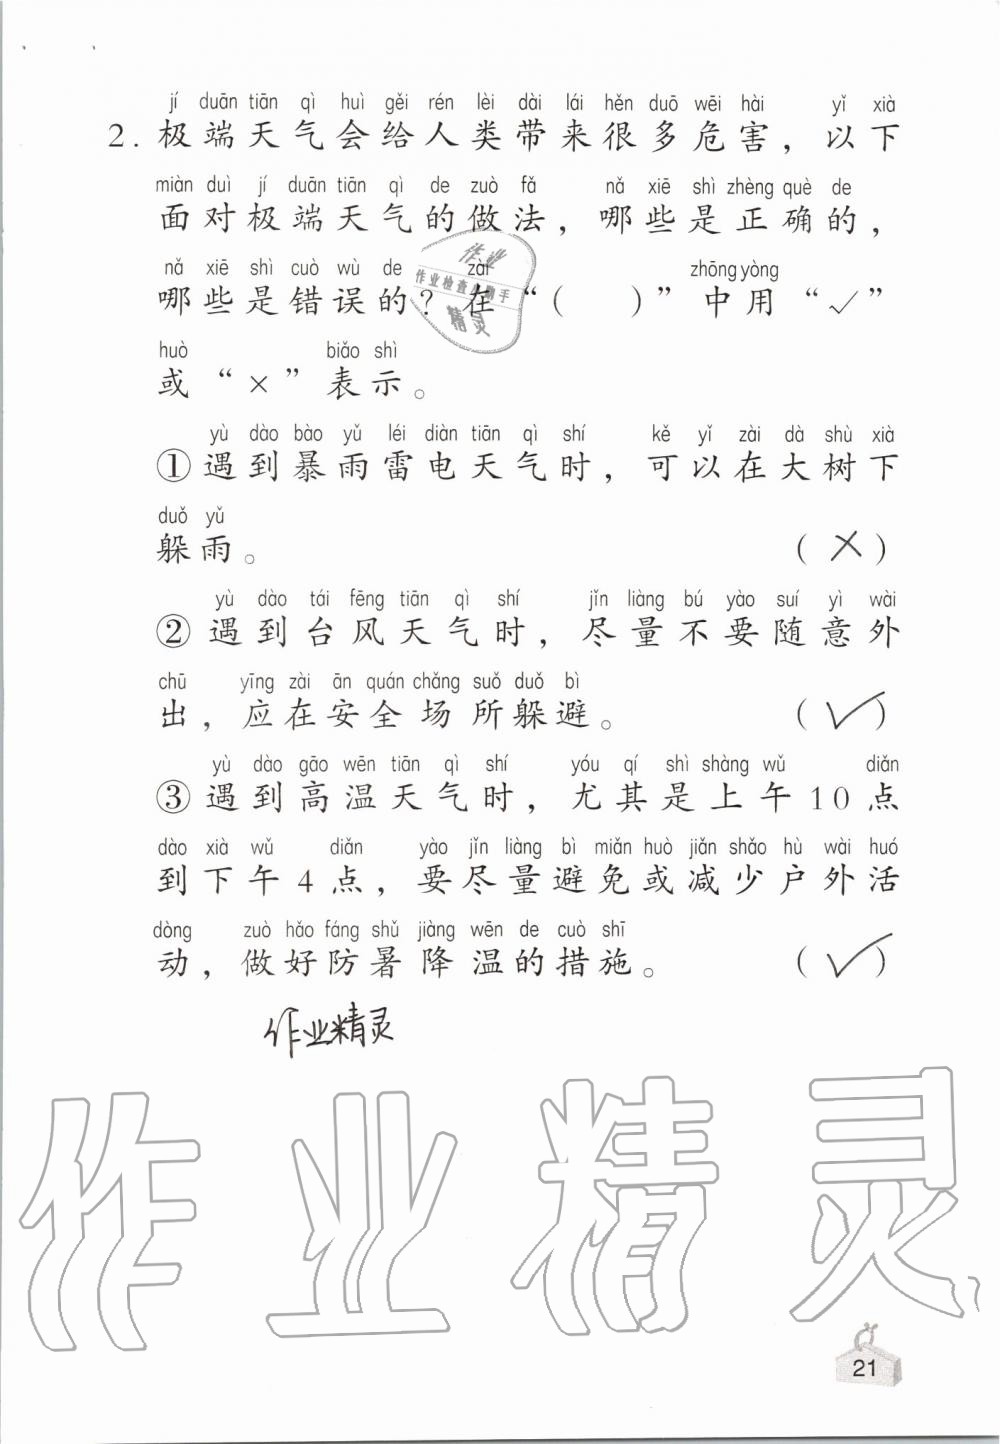 jí duān tiān qì huì gěi rén lèi dài lái hěn duō wēi hài yǐ xià
2. 极端天气会给人类带来很多危害，以下
miàn duì jí duān tiān qì de zuò fǎ nǎ xiē shì zhèng què de
面对极端天气的做法，哪些是正确的，
nǎ xiē shì cuò wù de zài zhōng yòng
哪些是错误的？在“（ ）”中用“✓”
huò biǎo shì
或“×”表示。
yù dào bào yǔ léi diàn tiān qì shí kě yǐ zài dà shù xià
①遇到暴雨雷电天气时，可以在大树下
duǒ yǔ
躲雨。 （×）
yù dào tái fēng tiān qì shí jǐn liàng bú yào suí yì wài
②遇到台风天气时，尽量不要随意外
chū yīng zài ān quán chǎng suǒ duǒ bì
出，应在安全场所躲避。 （✓）
yù dào gāo wēn tiān qì shí yóu qí shì shàng wǔ diǎn
③遇到高温天气时，尤其是上午10点
dào xià wǔ diǎn yào jǐn liàng bì miǎn huò jiǎn shǎo hù wài huó
到下午4点，要尽量避免或减少户外活
dòng zuò hǎo fáng shǔ jiàng wēn de cuò shī
动，做好防暑降温的措施。 （✓）
作业精灵
作业精灵
21
作业
作业检查小助手
精灵